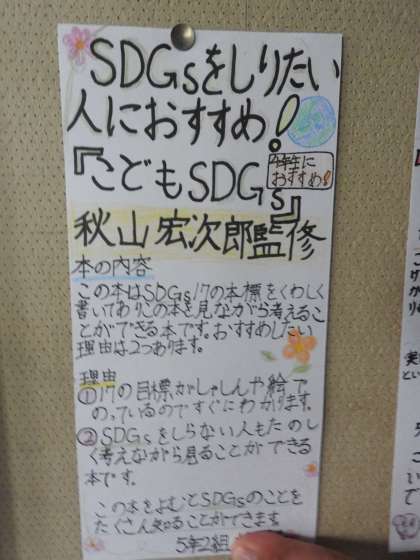 SDGsをしりたい
人におすすめ!
『こどもSDGs』
年生に
おすすめ!
秋山宏次郎監修
本の内容
この本はSDGs17の本標をくわしく
書いてありこの本を見ながら考えるこ
とができる本です。おすすめしたい
理由は2つあります。
理由
①17の目標がしゃしんや絵で
のっているのですぐにわかります。
②SDGsをしらない人もたのし
く考えながら見ることができる
本です。
この本をよむとSDGsのことを
たくさん知ることができます
5年2組